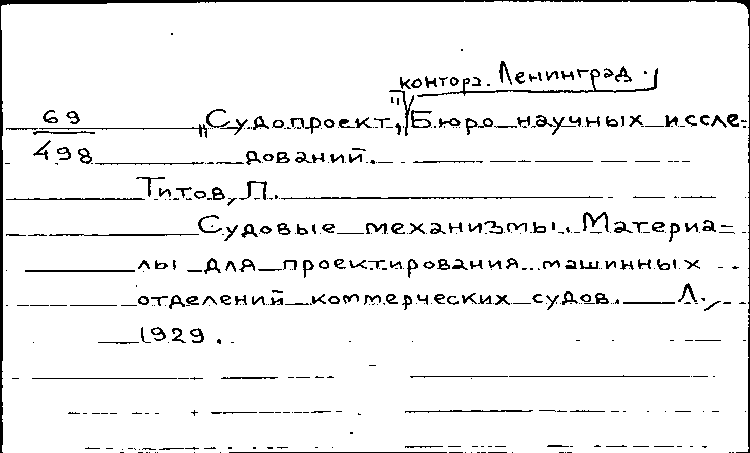 контора. Ленинград.
69 „Судопроект," Бюро научных иссле-
498 дований.
Титов, П.
Судовые механизмы. Материа-
лы для проектирования машинных
отделений коммерческих судов. Л.,
1929.